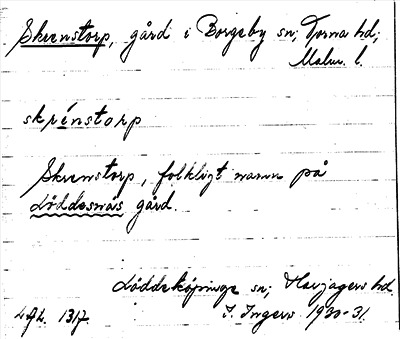 Skrenstorp, gård i Borgeby sn; Torna hd;
Malm. l.
skrénstorp
Skrenstorp, folkligt namn på
Löddesnäs gård.
Löddeköpinge sn; Harjagers hd.
LAL. 1317. I. Ingers 1930-31.